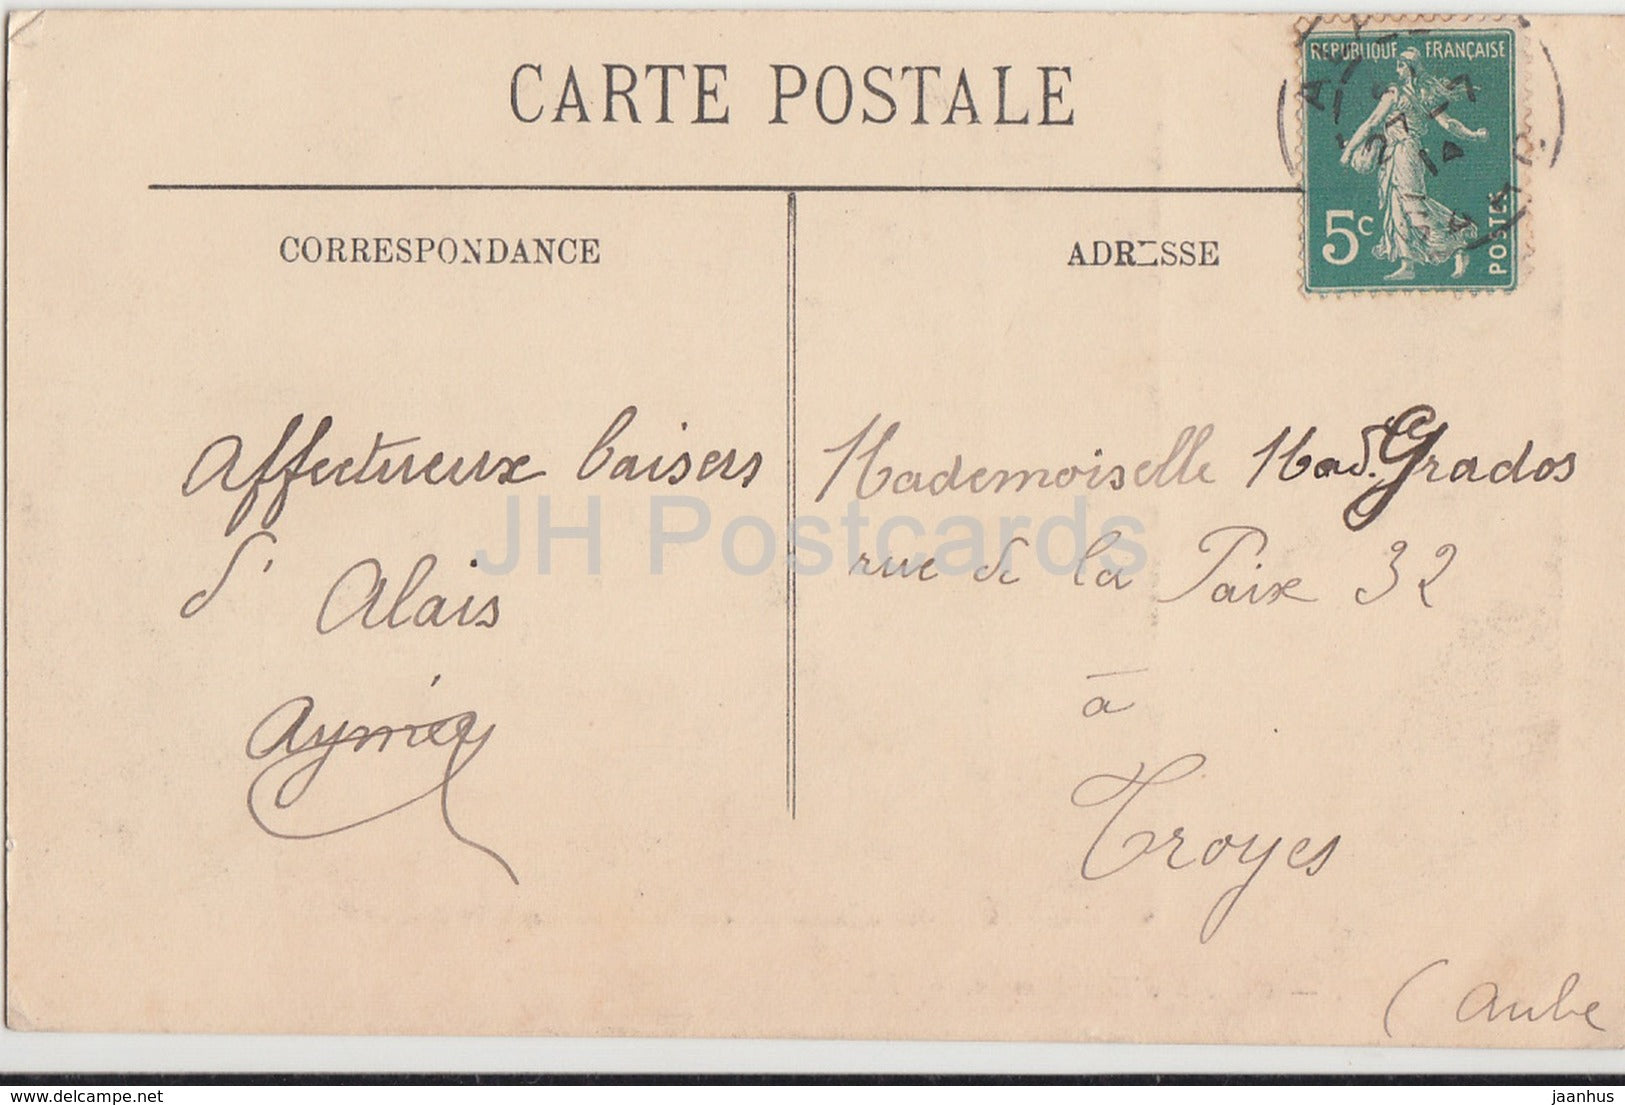 CARTE POSTALE
REPUBLIQUE FRANÇAISE
27 - 7
14
5c
POSTES
CORRESPONDANCE
ADRESSE
Affectueux baisers
d'Alais
Mademoiselle Mad. Grados
rue de la Paix 32
à
Troyes
(Aube
JH Postcards
delcampe.net
jaanhus